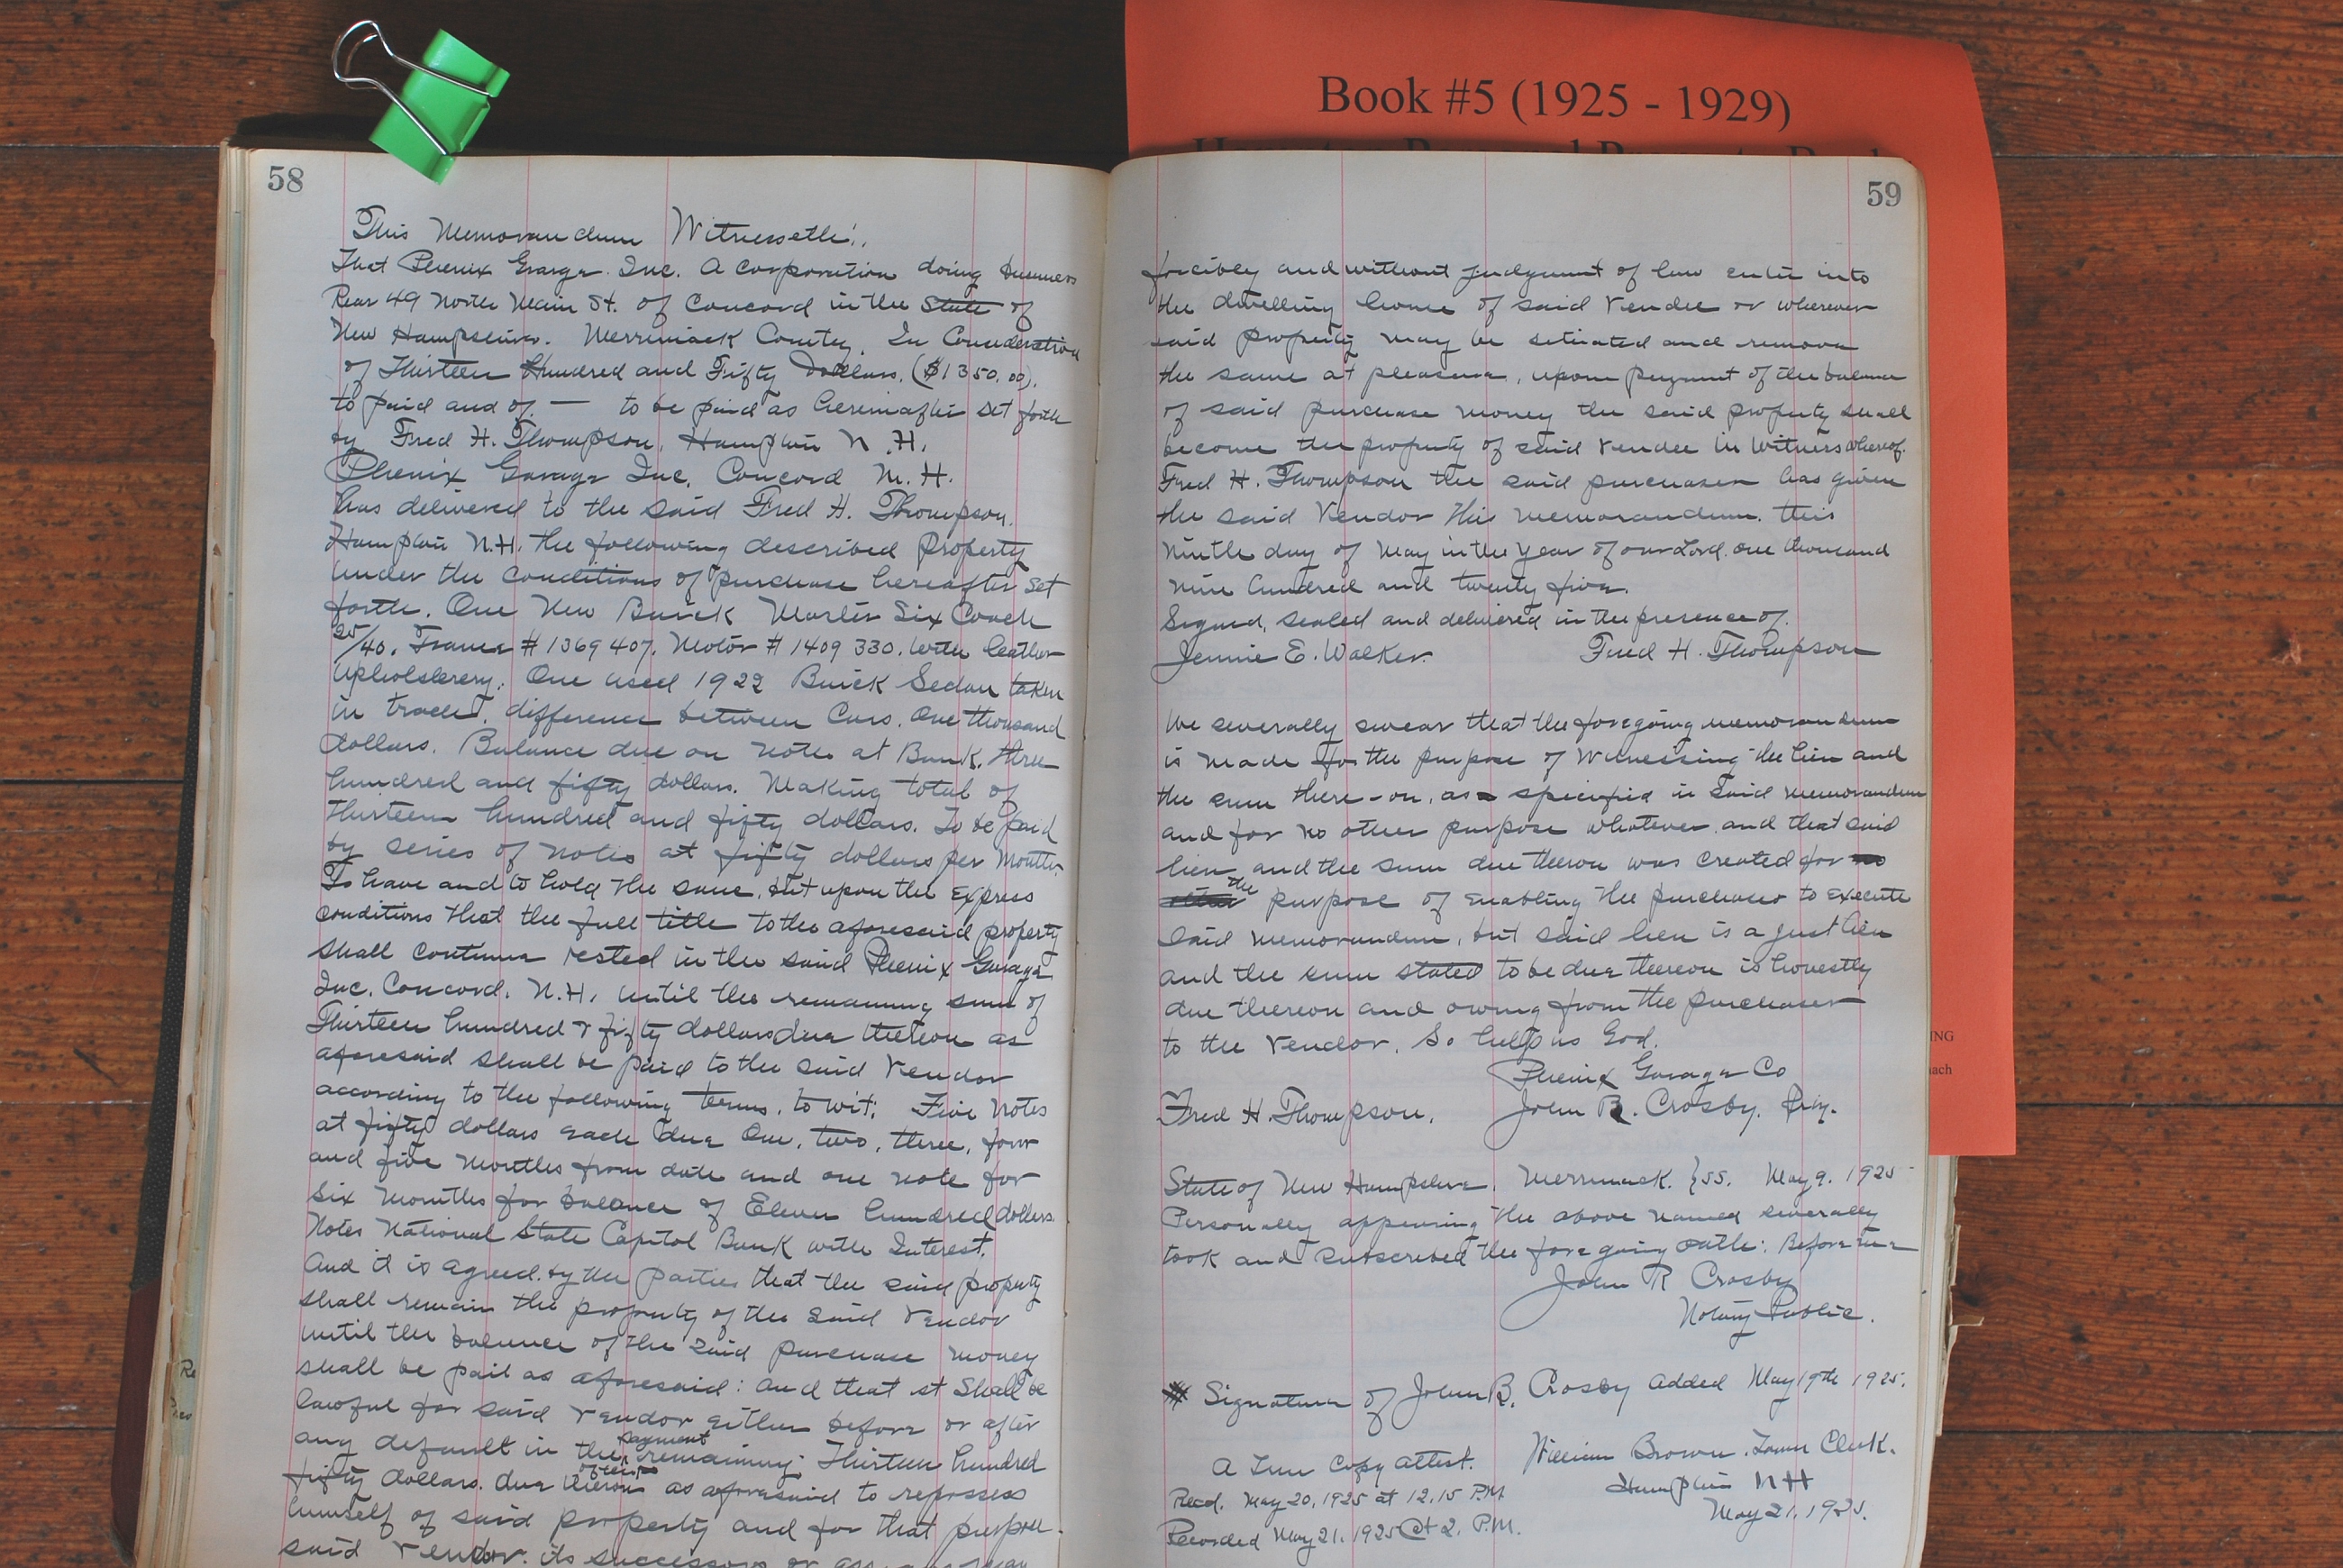 Book #5 (1925 - 1929)
58
This Memorandum Witnesseth:
That Phenix Garage Inc. A corporation doing business
Rear 49 North Main St. of Concord in the State of
New Hampshire. Merrimack County. In Consideration
of Thirteen Hundred and Fifty Dollars. ($1350.00).
to paid and of. — to be paid as hereinafter set forth
by Fred H. Thompson, Hampton N.H.
Phenix Garage Inc. Concord N.H.
has delivered to the said Fred H. Thompson.
Hampton N.H. the following described Property
under the conditions of purchase hereafter set
forth. One New Buick Master Six Coach
25/40. Frame # 1369407. Motor # 1409330. with leather
upholsterery. One used 1922 Buick Sedan taken
in trade. difference between Cars. One thousand
dollars. Balance due on notes at Bank. three
hundred and fifty dollars. Making total of
Thirteen hundred and fifty dollars. To be paid
by series of notes at fifty dollars per month.
To have and to hold the same, but upon the express
conditions that the full title to the aforesaid property
shall continue vested in the said Phenix Garage
Inc. Concord. N.H. until the remaining sum of
Thirteen hundred & fifty dollars due thereon as
aforesaid shall be paid to the said Vendor
according to the following terms. to wit: Five notes
at fifty dollars each due One, two, three, four
and five months from date and one note for
six months for balance of Eleven hundred dollars
Notes National State Capitol Bank with Interest.
And it is agreed by the parties that the said property
shall remain the property of the said Vendor
until the balance of the said purchase money
shall be paid as aforesaid: and that it shall be
lawful for said Vendor either before or after
any default in the payment remaining Thirteen hundred
fifty dollars. due thereon as aforesaid to repossess
himself of said property and for that purpose
said Vendor. its successors or may
59
forcibly and without judgment of law enter into
the dwelling house of said Vendee or wherever
said property may be situated and remove
the same at pleasure, upon payment of the balance
of said purchase money the said property shall
become the property of said Vendee in witness whereof.
Fred H. Thompson the said purchaser has given
the said Vendor this memorandum. this
Ninth day of May in the year of our Lord. one thousand
nine hundred and twenty five.
Signed, sealed and delivered in the presence of.
Jennie E. Walker. Fred H. Thompson
We severally swear that the foregoing memorandum
is made for the purpose of witnessing the lien and
the sum there-on, as specified in said memorandum
and for no other purpose whatever, and that said
lien and the sum due thereon was created for no
other the purpose of enabling the purchaser to execute
said memorandum, but said lien is a just lien
and the sum stated to be due thereon is honestly
due thereon and owing from the purchaser
to the Vendor. So help us God.
Phenix Garage Co
Fred H. Thompson. John B. Crosby.
State of New Hampshire. Merrimack. }SS. May 9. 1925
Personally appearing the above named severally
took and subscribed the foregoing oath: Before me
John R Crosby
Notary Public.
Signature of John B. Crosby added May 19th 1925.
A True Copy attest. William Brown. Town Clerk.
Hampton NH
Recd. May 20, 1925 at 12.15 P.M.
May 21, 1925.
Recorded May 21. 1925 @ 2. P.M.
ING